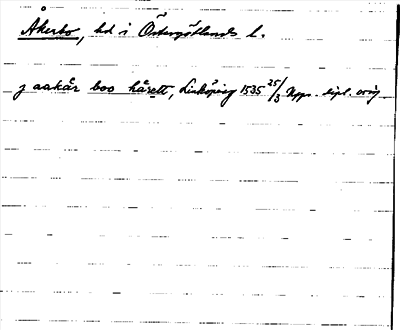 Åkerbo, hd i Östergötlands l.
j aakår boo hårett, Linköping 1535 25/3 Upps. dipl. orig.